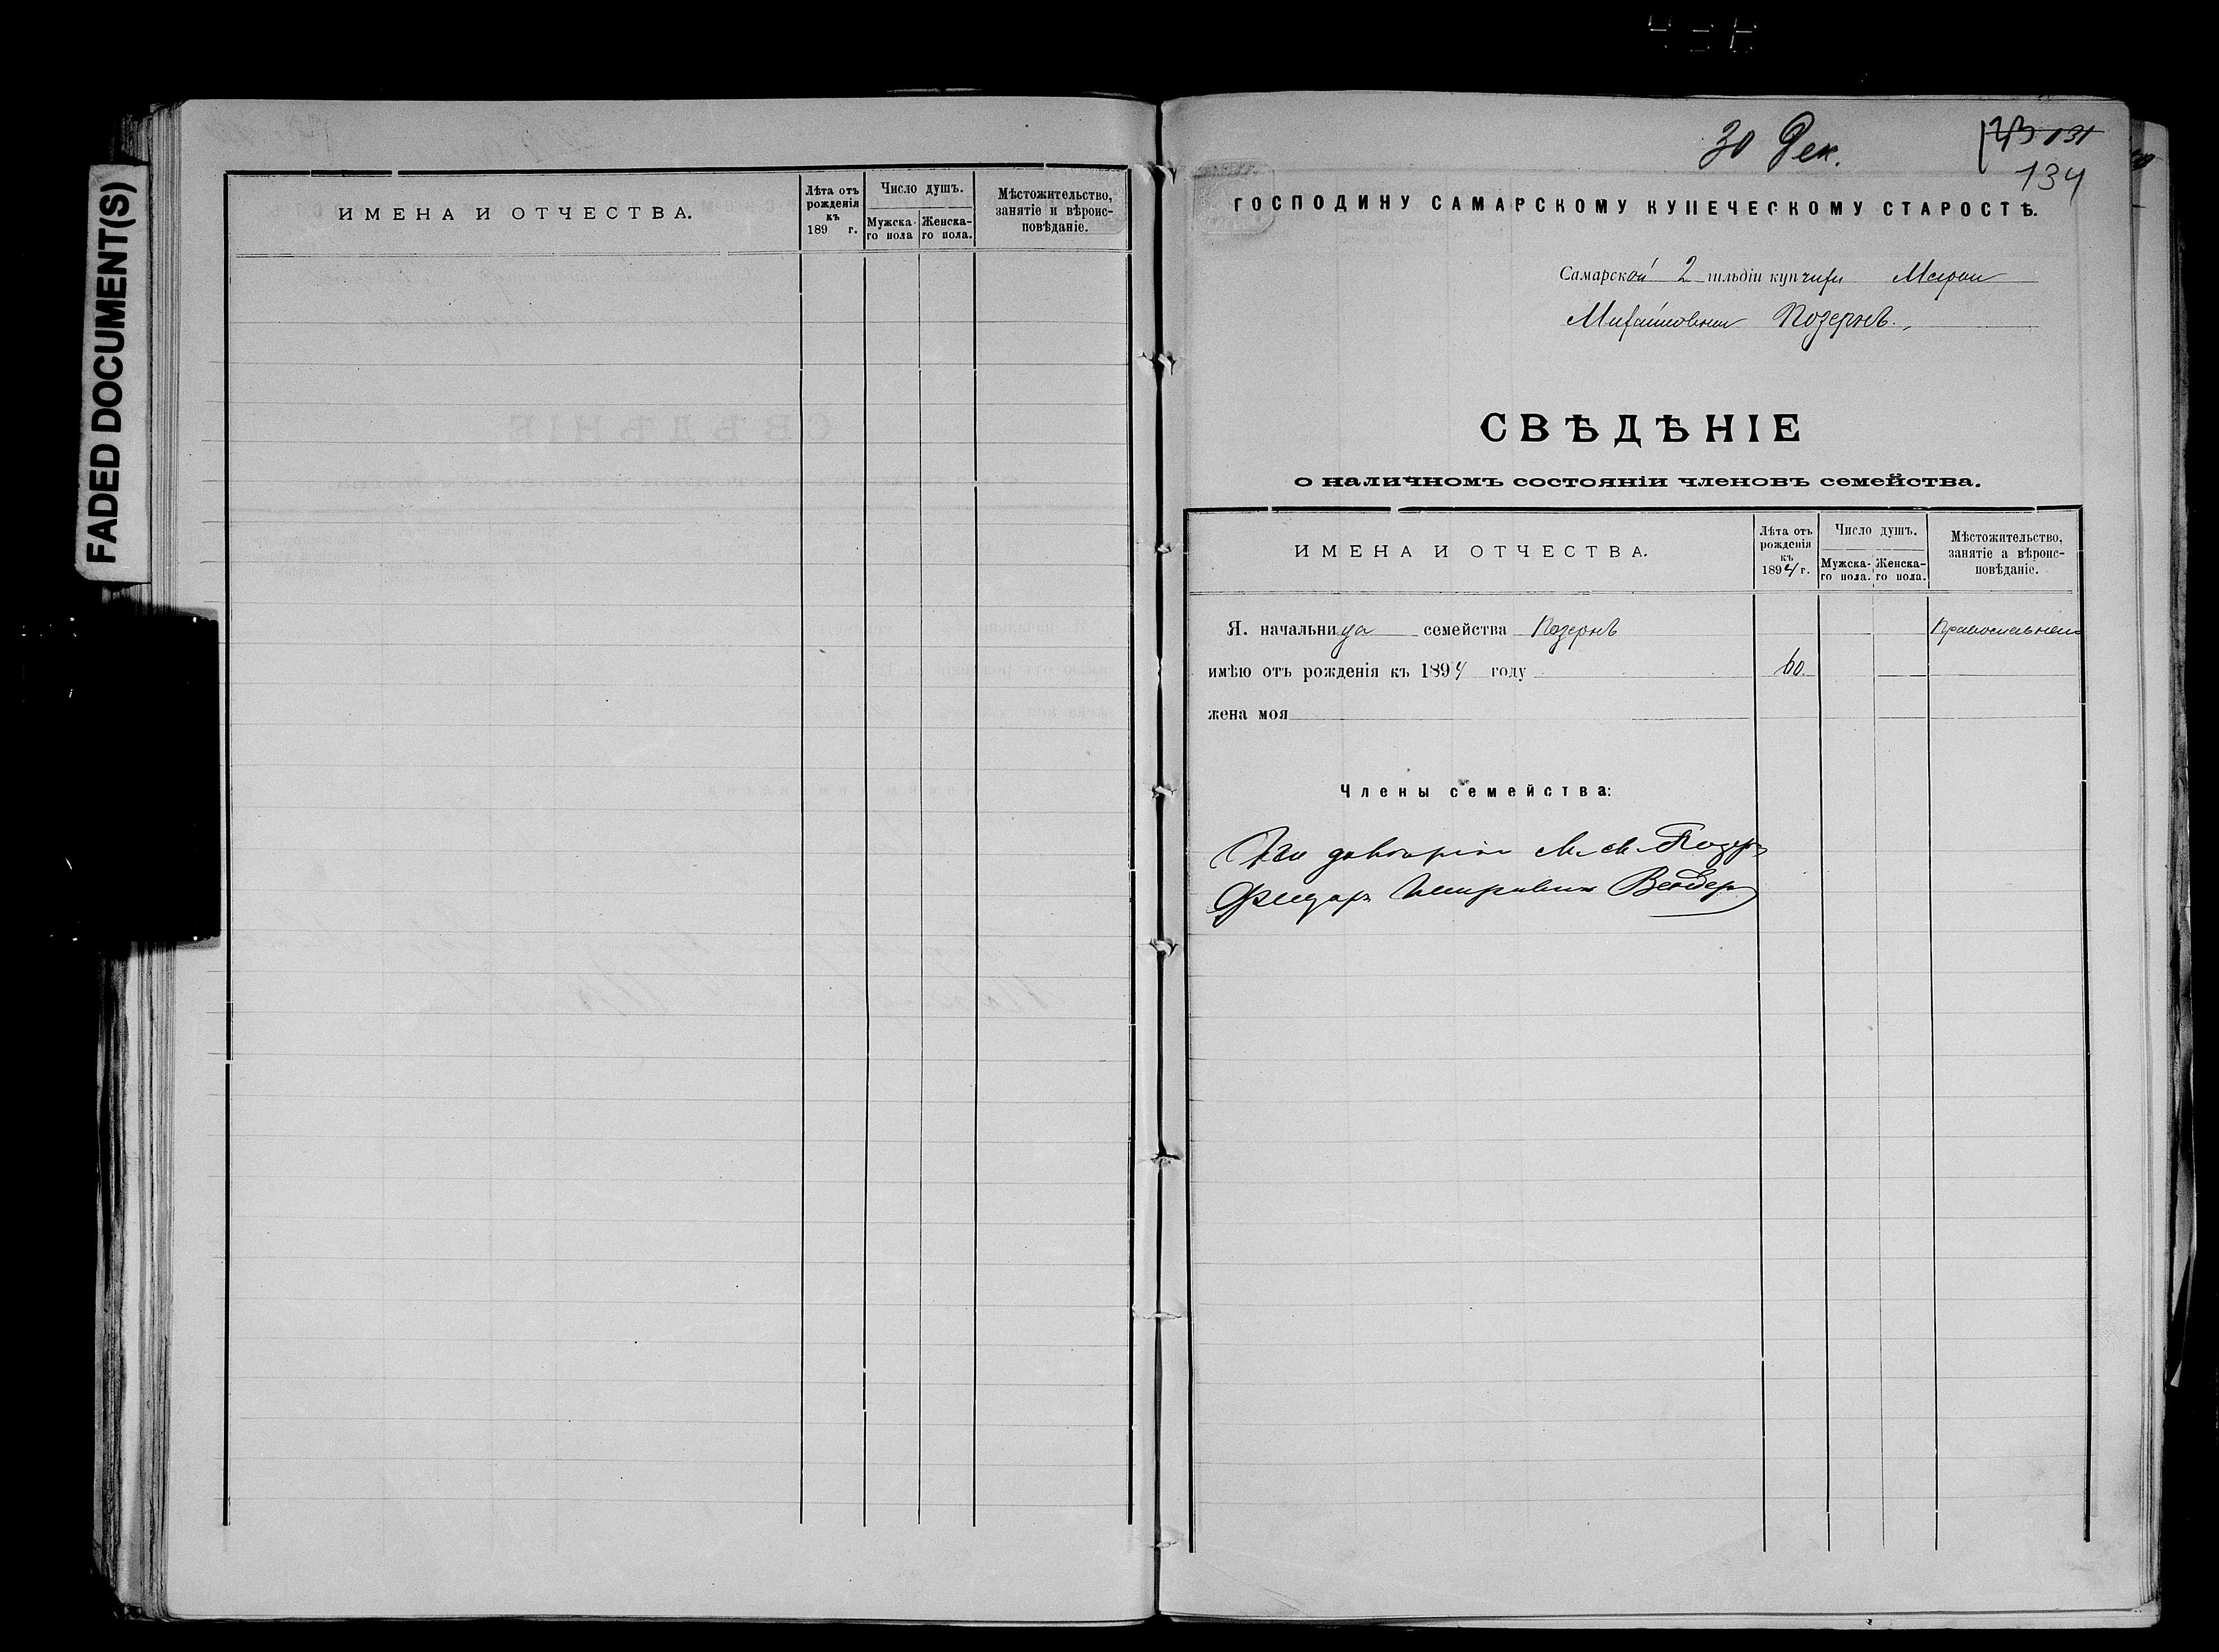 FADED DOCUMENT(S)
ИМЕНА И ОТЧЕСТВА.
Лѣта отъ рожденія къ 189 г.
Число душъ.
Мужска-го пола
Женска-го пола.
Мѣстожительство, занятіе и вѣроис-повѣданіе.
30 Дек.
131
134
ГОСПОДИНУ САМАРСКОМУ КУПЕЧЕСКОМУ СТАРОСТѢ.
Самарской 2 гильдіи купчихи Маріи
Михайловны Позернъ.
СВѢДѢНІЕ
о наличномъ состояніи членовъ семейства.
ИМЕНА И ОТЧЕСТВА.
Лѣта отъ рожденія къ 1894 г.
Число душъ.
Мужска-го пола.
Женска-го пола.
Мѣстожительство, занятіе а вѣроис-повѣданіе.
Я. начальница семейства Позернъ
имѣю отъ рожденія къ 1894 году 60.
жена моя
Члены семейства:
По довѣрію М. М. Позернъ